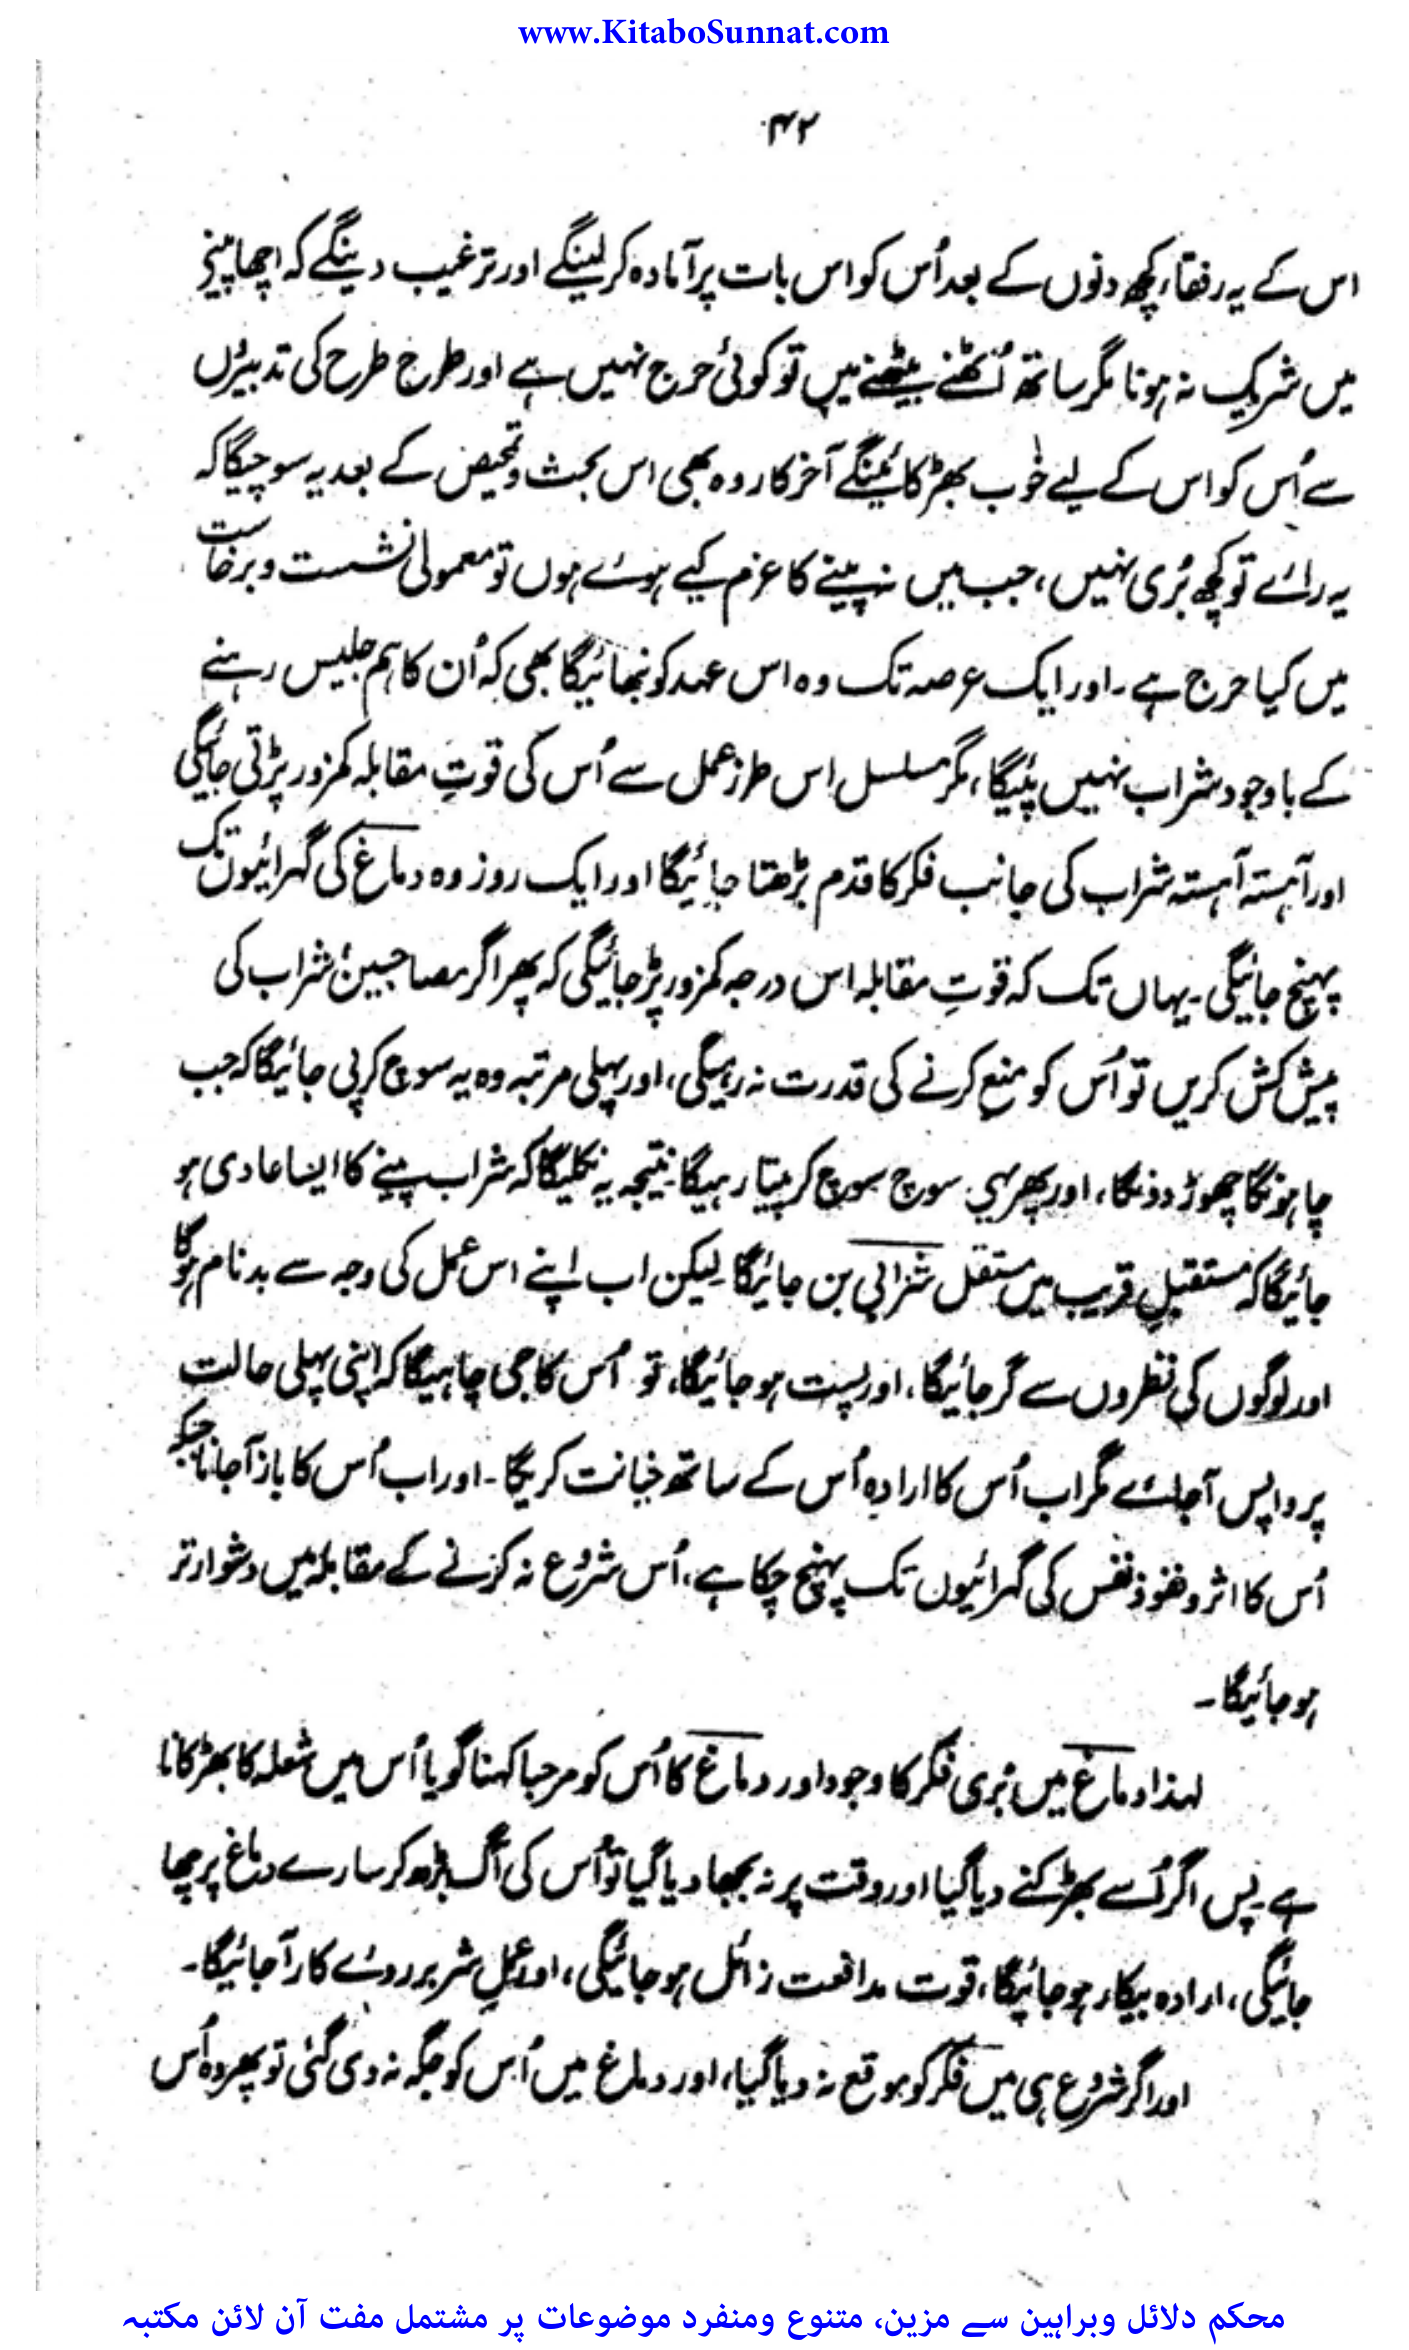 www.KitaboSunnat.com
۴۲
اس کے یہ رفقاء کچھ دنوں کے بعد اُس کو اس بات پر آمادہ کر لینگے اور ترغیب دینگے کہ اچھا پینے
میں شریک نہ ہونا مگر ساتھ اُٹھنے بیٹھنے میں تو کوئی حرج نہیں ہے اور طرح طرح کی تدبیروں
سے اُس کو اس کے لیے خوب بھڑکائینگے آخر کار وہ بھی اس بحث و تمحیص کے بعد یہ سوچیگا کہ
یہ رائے تو کچھ بُری نہیں، جب میں نہ پینے کا عزم کیے ہوئے ہوں تو معمولی نشست و برخاست
میں کیا حرج ہے۔ اور ایک عرصہ تک وہ اس عہد کو نبھائیگا بھی کہ اُن کا ہم جلیس رہنے
کے باوجود شراب نہیں پئیگا، مگر مسلسل اس طرز عمل سے اُس کی قوتِ مقابلہ کمزور پڑتی جائیگی
اور آہستہ آہستہ شراب کی جانب فکر کا قدم بڑھتا جائیگا اور ایک روز وہ دماغ کی گہرائیوں تک
پہنچ جائیگی۔ یہاں تک کہ قوتِ مقابلہ اس درجہ کمزور پڑ جائیگی کہ پھر اگر مصاحبین شراب کی
پیش کش کریں تو اُس کو منع کرنے کی قدرت نہ رہیگی، اور پہلی مرتبہ وہ یہ سوچ کر پی جائیگا کہ جب
چاہونگا چھوڑ دونگا، اور پھر یہی سوچ سوچ کر پیتا رہیگا۔ نتیجہ یہ نکلیگا کہ شراب پینے کا ایسا عادی ہو
جائیگا کہ مستقبلِ قریب میں مستقل شرابی بن جائیگا۔ لیکن اب اپنے اس عمل کی وجہ سے بدنام ہوگا
اور لوگوں کی نظروں سے گر جائیگا، اور پست ہو جائیگا، تو اُس کا جی چاہیگا کہ اپنی پہلی حالت
پر واپس آجائے مگر اب اُس کا ارادہ اُس کے ساتھ خیانت کریگا۔ اور اب اُس کا باز آجانا جبکہ
اُس کا اثر و نفوذ نفس کی گہرائیوں تک پہنچ چکا ہے، اُس شروع نہ کرنے کے مقابلہ میں دشوار تر
ہو جائیگا۔
لہذا دماغ میں بُری فکر کا وجود اور دماغ کا اُس کو مرحبا کہنا گویا اُس میں شعلہ کا بھڑکانا
ہے۔ پس اگر اُسے بھڑکنے دیا گیا اور وقت پر نہ بجھا دیا گیا تو اُس کی آگ بڑھ کر سارے دماغ پر چھا
جائیگی، ارادہ بیکار ہو جائیگا، قوت مدافعت زائل ہو جائیگی، اور عملِ شر بر روئے کار آجائیگا۔
اور اگر شروع ہی میں فکر کو موقع نہ دیا گیا، اور دماغ میں اُس کو جگہ نہ دی گئی تو پھر وہ اُس
محکم دلائل وبراہین سے مزین، متنوع ومنفرد موضوعات پر مشتمل مفت آن لائن مکتبہ